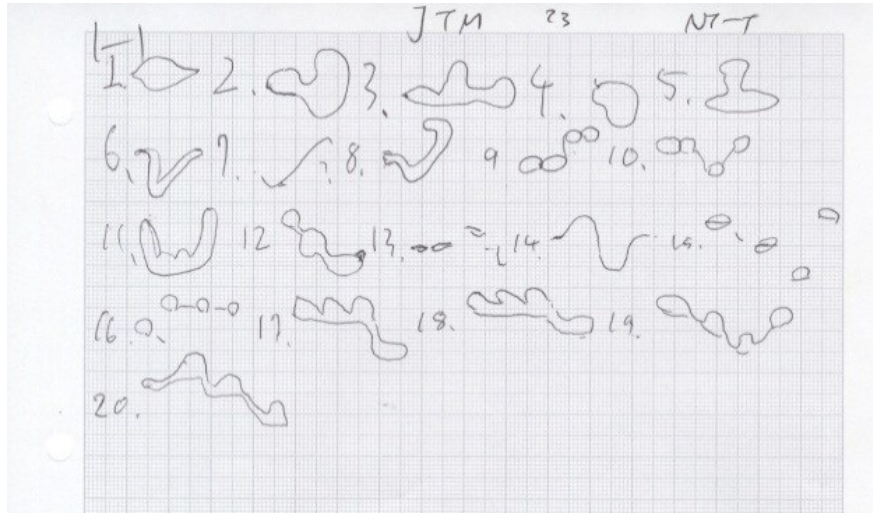 JTM 23 NT-T
1. 2. 3. 4. 5.
6. 7. ? 8. 9 10.
11. 12 13. 14. 15.
16. 17. 18. 19.
20.